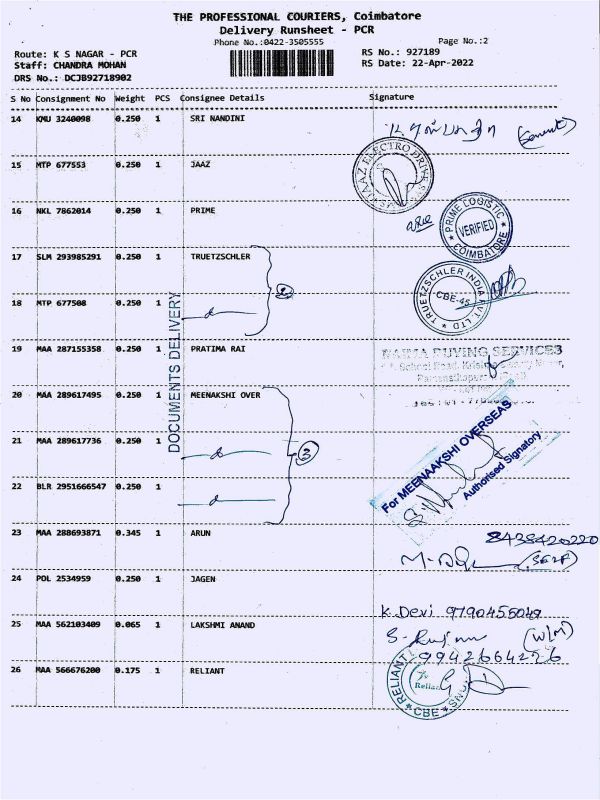 THE PROFESSIONAL COURIERS, Coimbatore
Delivery Runsheet - PCR
Phone No.:0422-3505555
Page No.:2
Route: K S NAGAR - PCR
RS No.: 927189
Staff: CHANDRA MOHAN
RS Date: 22-Apr-2022
DRS No.: DCJB92718902
S No Consignment No Weight PCS Consignee Details Signature
14 KMU 3240098 0.250 1 SRI NANDINI
15 MTP 677553 0.250 1 JAAZ
JAAZ ELECTRO DRIVE
16 NKL 7862014 0.250 1 PRIME
PRIME LOGISTIC
VERIFIED
COIMBATORE
17 SLM 293985291 0.250 1 TRUETZSCHLER
TRUETZSCHLER INDIA PVT. LTD
CBE-45
18 MTP 677508 0.250 1
2
DOCUMENTS DELIVERY
19 MAA 287155358 0.250 1 PRATIMA RAI
NAIMA BUYING SERVICES
School Road,
20 MAA 289617495 0.250 1 MEENAKSHI OVER
21 MAA 289617736 0.250 1
3
22 BLR 2951666547 0.250 1
For MEENAAKSHI OVERSEAS
Authorised Signatory
23 MAA 288693871 0.345 1 ARUN
8438420220
(SELF)
24 POL 2534959 0.250 1 JAGEN
K. Devi 9790455049
25 MAA 562103409 0.065 1 LAKSHMI ANAND
(W/M)
9942664226
26 MAA 566676200 0.175 1 RELIANT
RELIANT
CBE